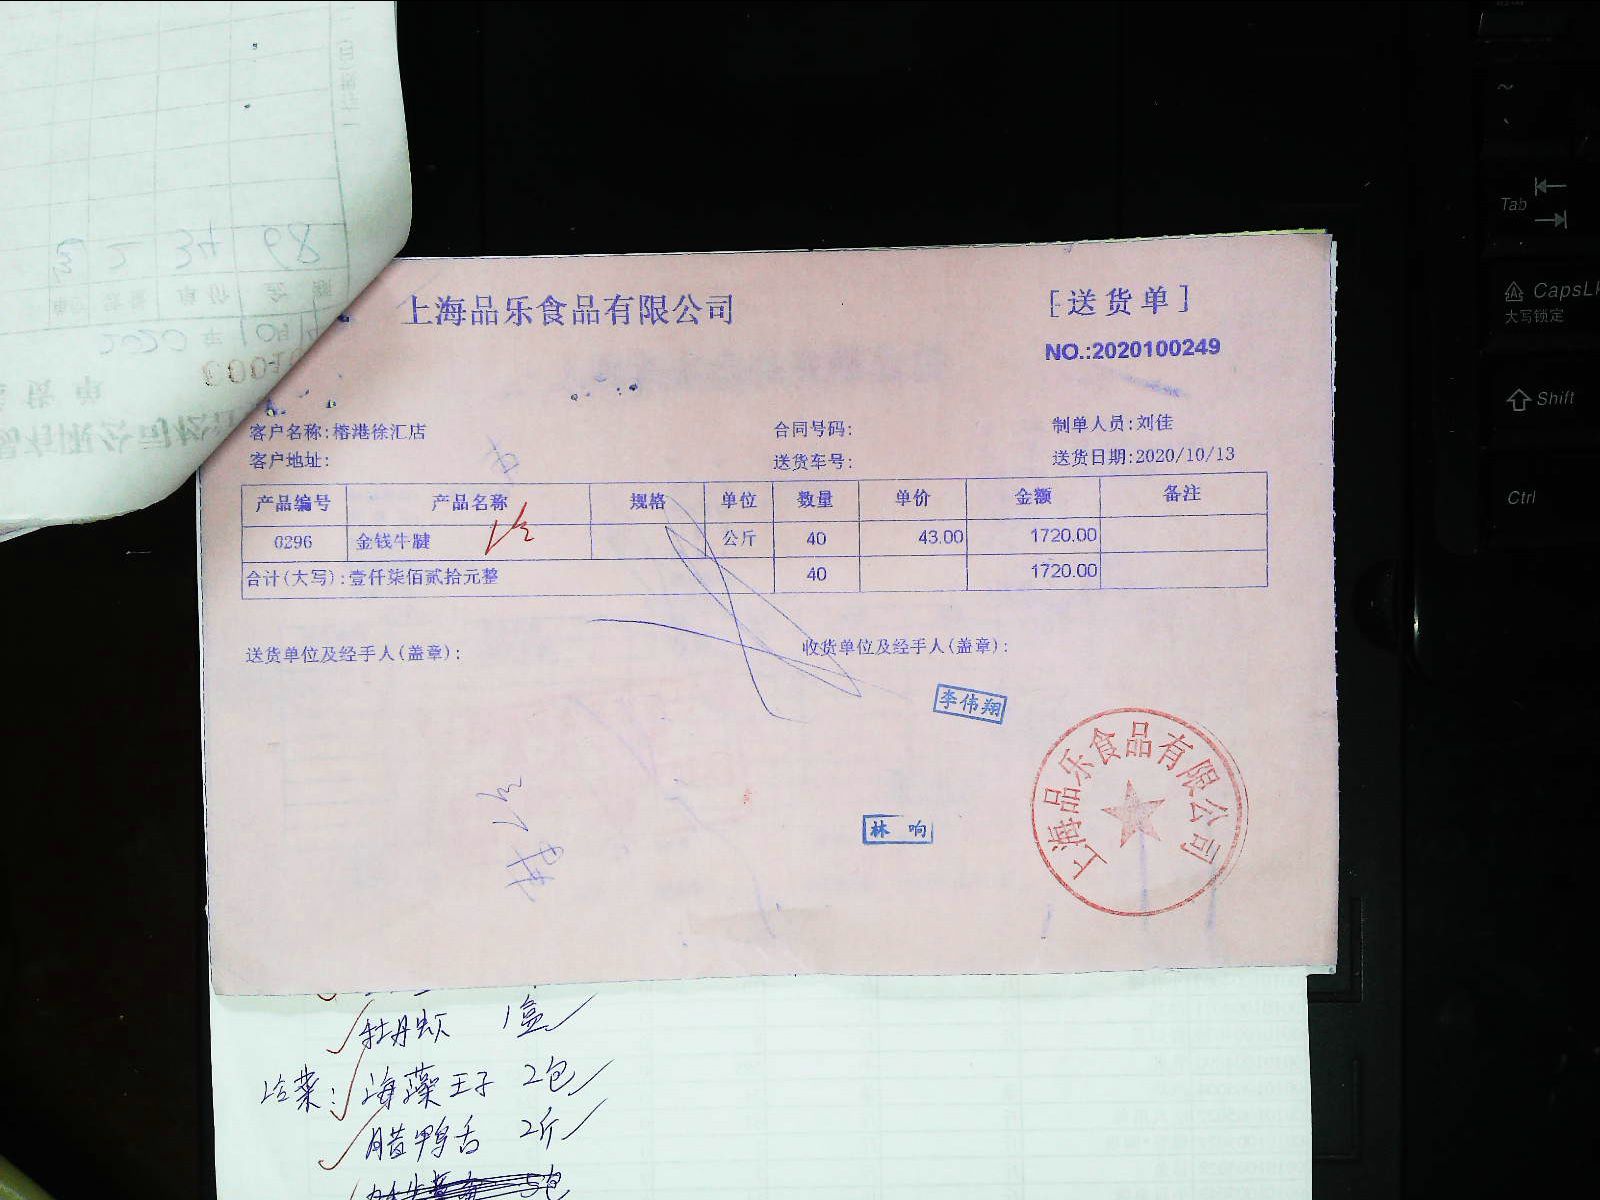 3 2 34 68
2020 年 10月14
上海品乐食品有限公司
[送货单]
NO.:2020100249
客户名称:榕港徐汇店
合同号码:
制单人员:刘佳
客户地址:
送货车号:
送货日期:2020/10/13
产品编号 产品名称 规格 单位 数量 单价 金额 备注
0296 金钱牛腱 公斤 40 43.00 1720.00
合计(大写):壹仟柒佰贰拾元整 40 1720.00
送货单位及经手人(盖章):
收货单位及经手人(盖章):
李伟翔
林响
上海品乐食品有限公司
牡丹虾 1盒
冷菜: 海藻王子 2包
腊鸭舌 2斤
5包
~
Tab
CapsL
大写锁定
Shift
Ctrl